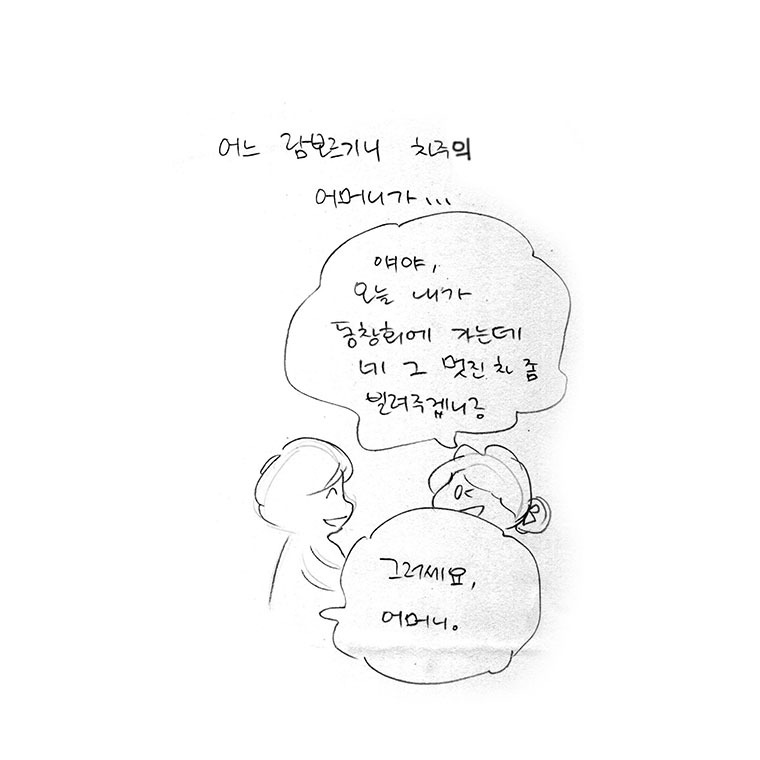 어느 람보르기니 차주의
어머니가...
얘야,
오늘 내가
동창회에 가는데
네 그 멋진 차 좀
빌려주겠니증
그러세요,
어머니.